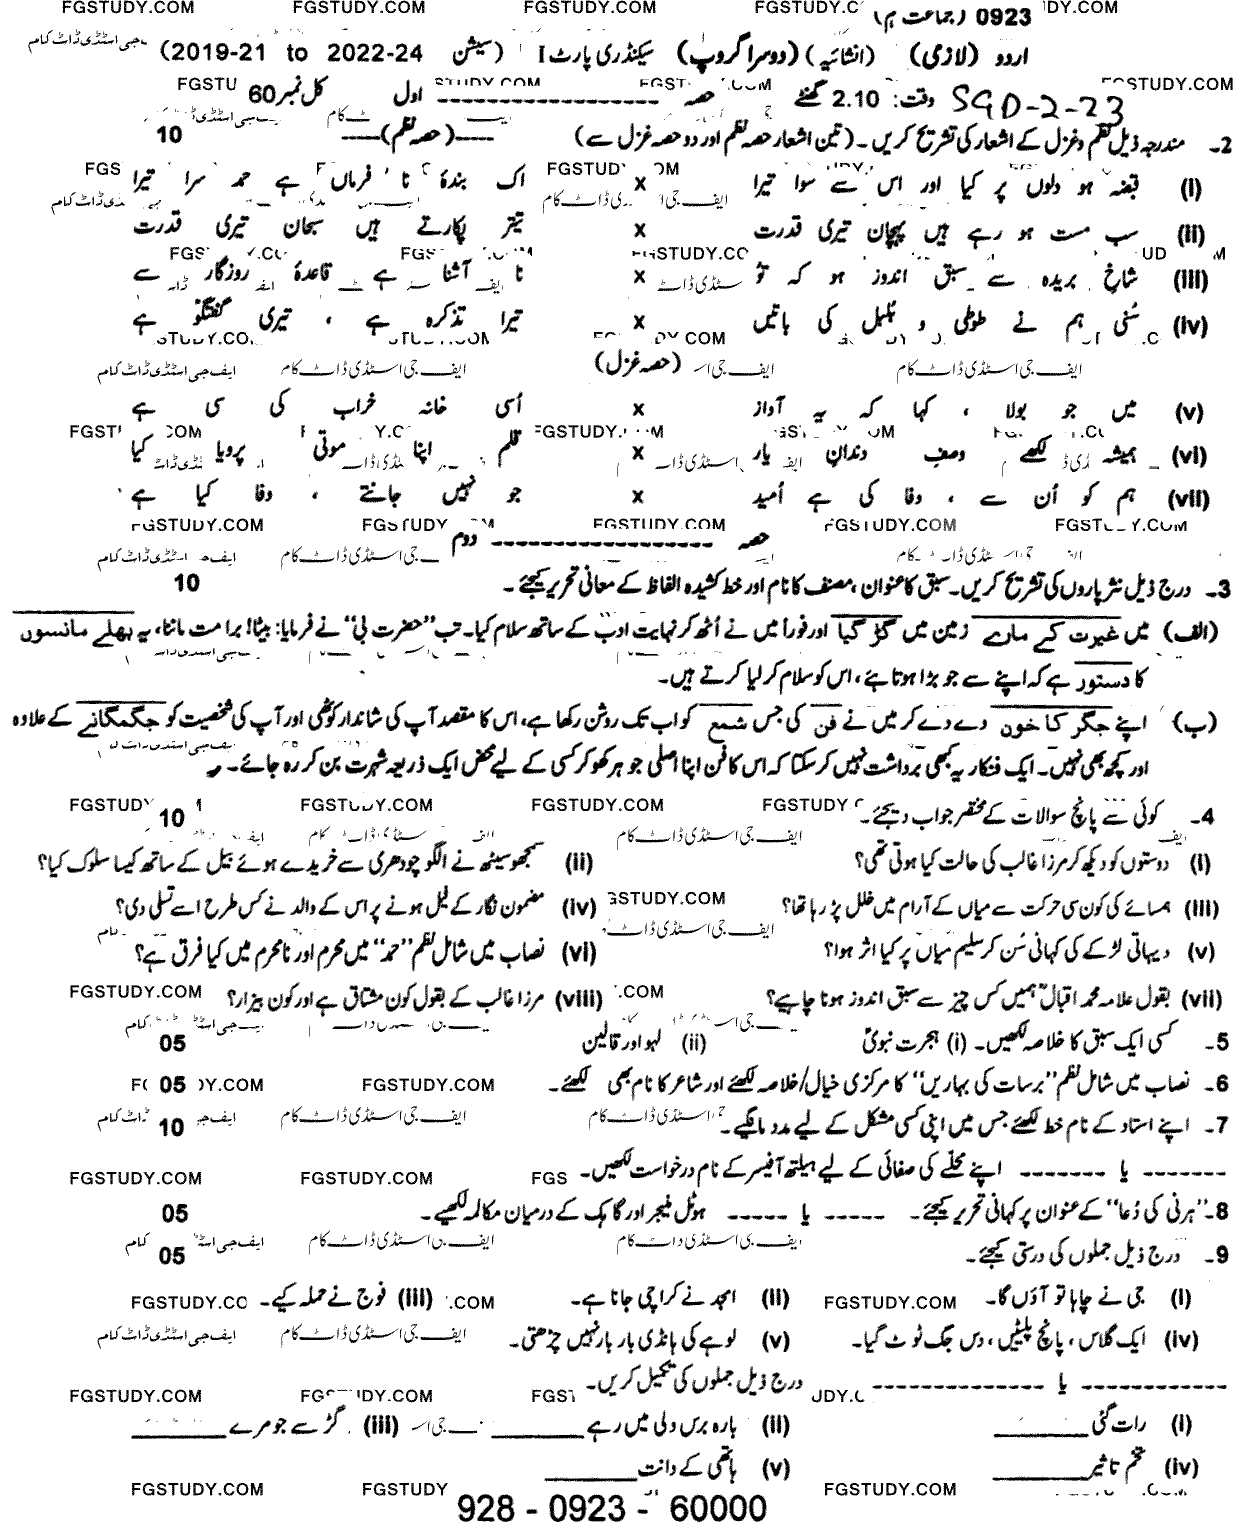 0923 (جماعت نہم)
اردو (لازمی) (انشائیہ) (دوسرا گروپ) سیکنڈری پارٹ I (سیشن 2019-21 to 2022-24)
SGD-2-23 وقت: 2.10 گھنٹے حصہ ------------------ اول کل نمبر 60
2۔ مندرجہ ذیل نظم و غزل کے اشعار کی تشریح کریں۔ (تین اشعار حصہ نظم اور دو حصہ غزل سے) ----(حصہ نظم)---- 10
(i) قبضہ ہو دلوں پر کیا اور اس سے سوا تیرا x اک بندۂ نا فرماں ہے حمد سرا تیرا
(ii) سب مست ہو رہے ہیں پہچان تیری قدرت x تیتر پکارتے ہیں سبحان تیری قدرت
(iii) شاخِ بریدہ سے سبق اندوز ہو کہ تو x نا آشنا ہے قاعدۂ روزگار سے
(iv) سُنی ہم نے طوطی و بُلبل کی باتیں x تیرا تذکرہ ہے ، تیری گفتگو ہے
(حصہ غزل)
(v) میں جو بولا ، کہا کہ یہ آواز x اُسی خانہ خراب کی سی ہے
(vi) ہمیشہ لکھے وصفِ دندانِ یار x قلم اپنا موتی پرویا کیا
(vii) ہم کو اُن سے ، وفا کی ہے اُمید x جو نہیں جانتے ، وفا کیا ہے
حصہ ------------------ دوم
3۔ درج ذیل نثر پاروں کی تشریح کریں۔ سبق کا عنوان ، مصنف کا نام اور خط کشیدہ الفاظ کے معانی تحریر کیجئے۔ 10
(الف) میں غیرت کے مارے زمین میں گڑ گیا اور فوراً میں نے اُٹھ کر نہایت ادب کے ساتھ سلام کیا۔ تب ‘‘حضرت بی’’ نے فرمایا: بیٹا! برا مت ماننا، یہ بھلے مانسوں
کا دستور ہے کہ اپنے سے جو بڑا ہوتا ہے ، اس کو سلام کر لیا کرتے ہیں۔
(ب) اپنے جگر کا خون دے دے کر میں نے فن کی جس شمع کو اب تک روشن رکھا ہے، اس کا مقصد آپ کی شاندار کوٹھی اور آپ کی شخصیت کو جگمگانے کے علاوہ
اور کچھ بھی نہیں۔ ایک فنکار یہ کبھی برداشت نہیں کر سکتا کہ اس کا فن اپنا اصلی جوہر کھو کر کسی کے لیے محض ایک ذریعہ شہرت بن کر رہ جائے۔
4۔ کوئی سے پانچ سوالات کے مختصر جواب دیجئے۔ 10
(i) دوستوں کو دیکھ کر مرزا غالب کی حالت کیا ہوتی تھی؟ (ii) سمجھو سیٹھ نے الگو چودھری سے خریدے ہوئے بیل کے ساتھ کیسا سلوک کیا؟
(iii) ہمسائے کی کون سی حرکت سے میاں کے آرام میں خلل پڑ رہا تھا؟ (iv) مضمون نگار کے فیل ہونے پر اس کے والد نے کس طرح اسے تسلی دی؟
(v) دیہاتی لڑکے کی کہانی سُن کر سلیم میاں پر کیا اثر ہوا؟ (vi) نصاب میں شامل نظم ‘‘حمد’’ میں محرم اور نا محرم میں کیا فرق ہے؟
(vii) بقول علامہ محمد اقبالؒ ہمیں کس چیز سے سبق اندوز ہونا چاہیے؟ (viii) مرزا غالب کے بقول کون مشتاق ہے اور کون بیزار؟
5۔ کسی ایک سبق کا خلاصہ لکھیں۔ (i) ہجرت نبویؐ (ii) لہو اور قالین 05
6۔ نصاب میں شامل نظم ‘‘برسات کی بہاریں’’ کا مرکزی خیال/خلاصہ لکھئے اور شاعر کا نام بھی لکھئے۔ 05
7۔ اپنے استاد کے نام خط لکھئے جس میں اپنی کسی مشکل کے لیے مدد مانگیے۔ 10
------- یا ------- اپنے محلّے کی صفائی کے لیے ہیلتھ آفیسر کے نام درخواست لکھیں۔
8۔ ‘‘ہرنی کی دُعا’’ کے عنوان پر کہانی تحریر کیجئے۔ ----- یا ----- ہوٹل منیجر اور گاہک کے درمیان مکالمہ لکھیے۔ 05
9۔ درج ذیل جملوں کی درستی کیجئے۔ 05
(i) جی نے چاہا تو آؤں گا۔ (ii) امجد نے کراچی جانا ہے۔ (iii) فوج نے حملہ کیے۔
(iv) ایک گلاس ، پانچ پلیٹیں ، دس جگ ٹوٹ گیا۔ (v) لوہے کی ہانڈی بار بار نہیں چڑھتی۔
------------ یا ------------ درج ذیل جملوں کی تکمیل کریں۔
(i) رات گئی ______ (ii) بارہ برس دلی میں رہے ______ (iii) گڑ سے جو مرے ______
(iv) تخم تاثیر ______ (v) ہاتھی کے دانت ______
928 - 0923 - 60000
FGSTUDY.COM
ایف جی اسٹڈی ڈاٹ کام